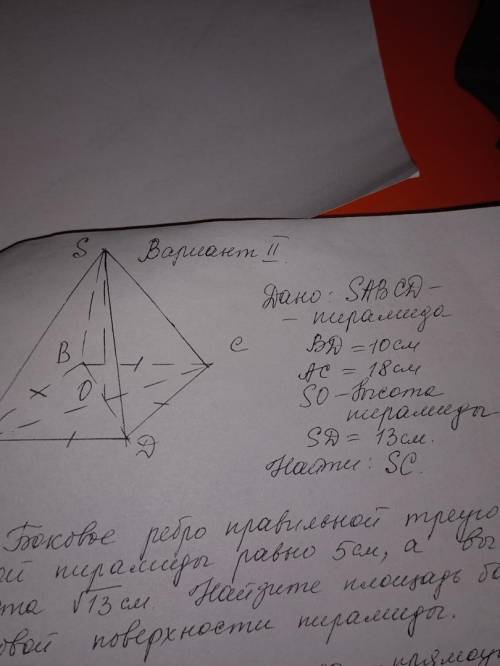 S Вариант II
Дано: SABCD –
– пирамида
BD = 10см
AC = 18см
SO – высота
пирамиды
SD = 13см.
Найти: SC.
B
C
O
D
Боковое ребро правильной треуго
ой пирамиды равно 5см, а вы
та √13 см. Найдите площадь бо
овой поверхности пирамиды.